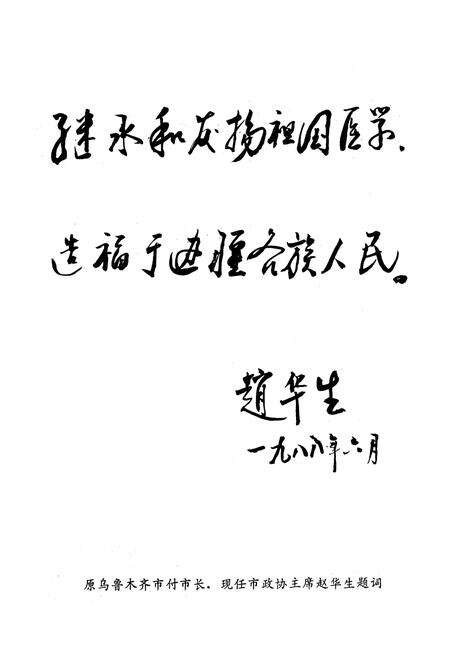 继承和发扬祖国医学、
造福于边疆各族人民。
趙华生
一九八八年六月
原乌鲁木齐市付市长，现任市政协主席赵华生题词